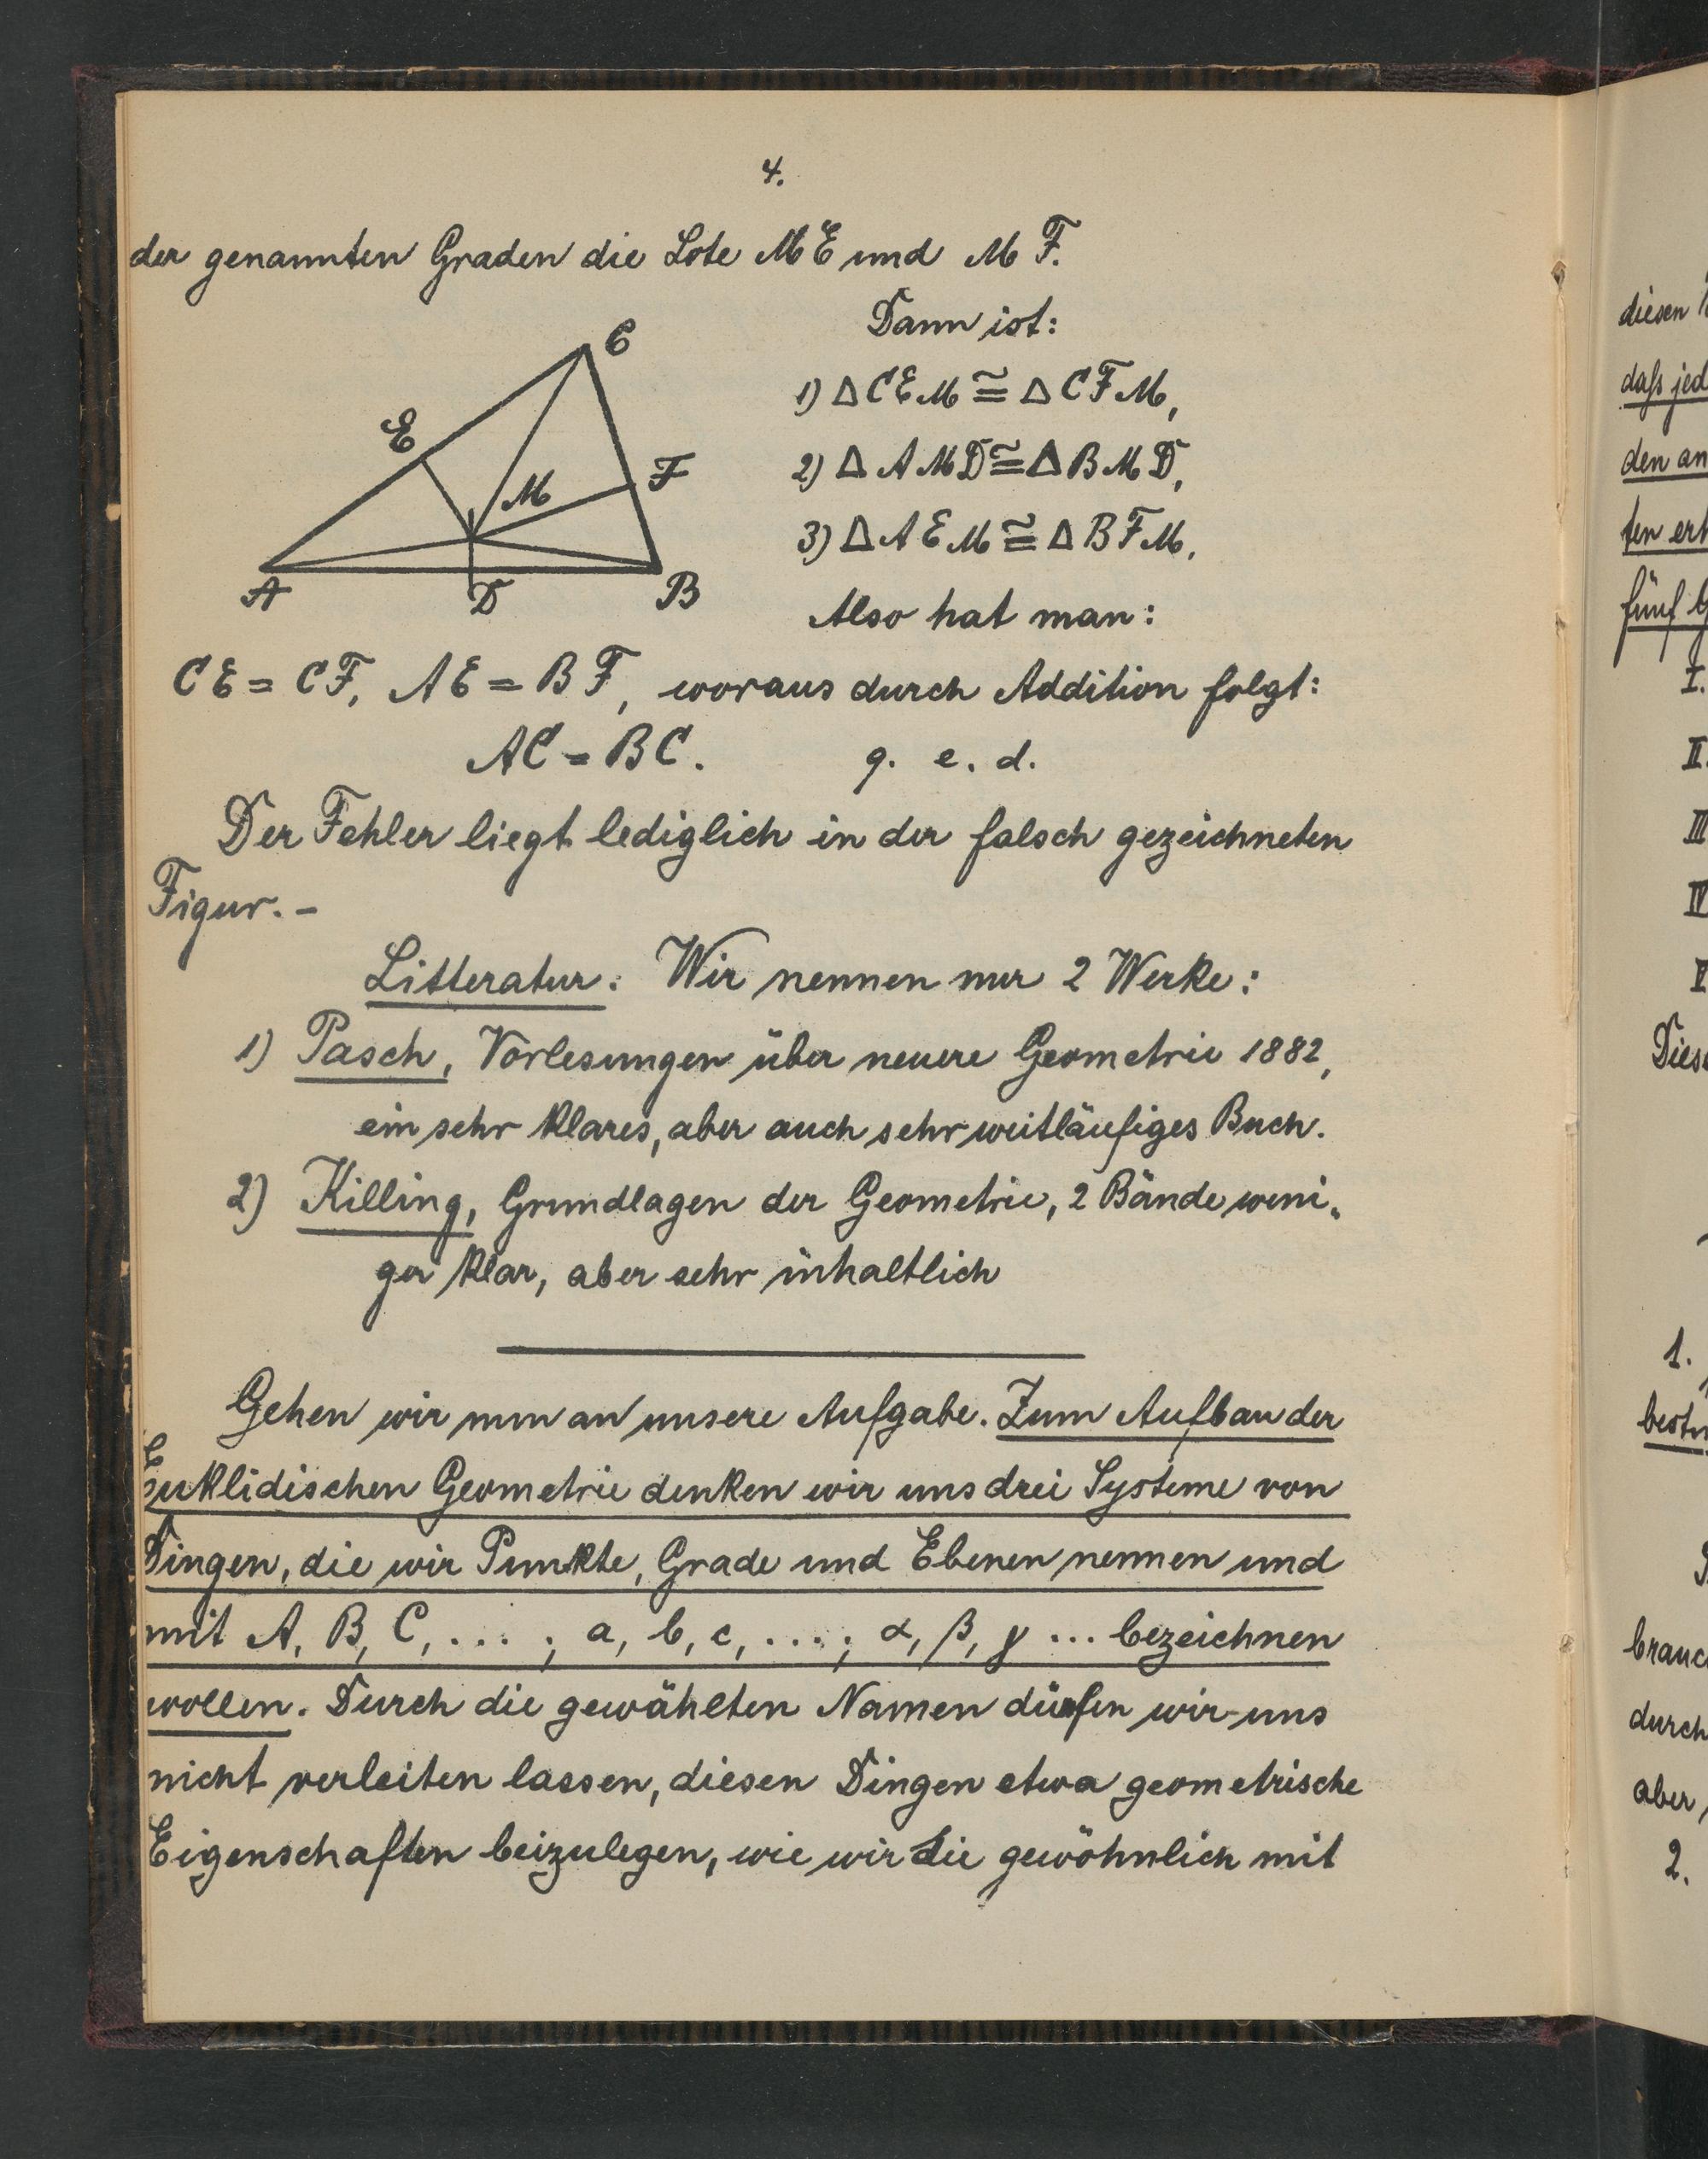 4.
der genannten Graden die Lote ME und MF.
Dann ist:
1) △ CEM ≅ △ CFM,
2) △ AMD ≅ △ BMD,
3) △ AEM ≅ △ BFM.
Also hat man:
C
E
M
F
A
D
B
CE = CF, AE = BF, woraus durch Addition folgt:
AC = BC. q. e. d.
Der Fehler liegt lediglich in der falsch gezeichneten
Figur. –
Litteratur: Wir nennen nur 2 Werke:
1) Pasch, Vorlesungen über neuere Geometrie 1882,
ein sehr klares, aber auch sehr weitläufiges Buch.
2) Killing, Grundlagen der Geometrie, 2 Bände weni-
ger klar, aber sehr inhaltlich
Gehen wir nun an unsere Aufgabe. Zum Aufbau der
Euklidischen Geometrie denken wir uns drei Systeme von
Dingen, die wir Punkte, Grade und Ebenen nennen und
mit A, B, C, ... ; a, b, c, .... ; α, β, γ ... bezeichnen
wollen. Durch die gewählten Namen dürfen wir uns
nicht verleiten lassen, diesen Dingen etwa geometrische
Eigenschaften beizulegen, wie wir sie gewöhnlich mit
diesen
daß jed
den an
ten
fünf
I.
II.
III
IV
V
Diese
1.
brauc
durch
aber
2.